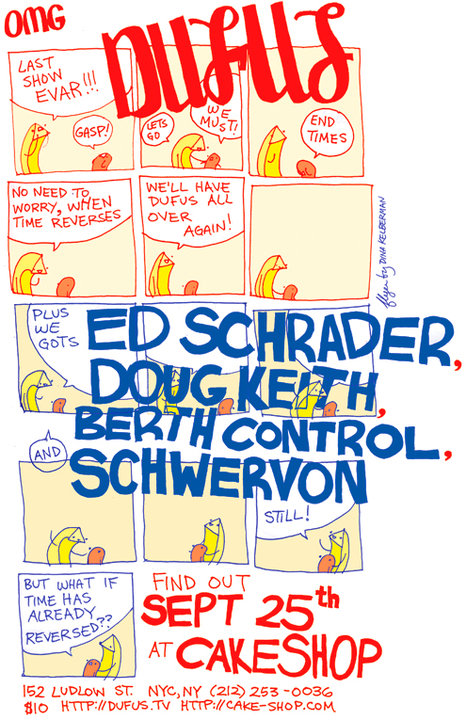 OMG
DUFUS
LAST
SHOW
EVAR!!!
GASP!
LETS
GO
WE
MUST!
END
TIMES
NO NEED TO
WORRY, WHEN
TIME REVERSES
WE'LL HAVE
DUFUS ALL
OVER
AGAIN!
flyer by DINA KELBERMAN
PLUS
WE
GOTS
ED SCHRADER,
DOUG KEITH,
BERTH CONTROL,
AND
SCHWERVON
STILL!
BUT WHAT IF
TIME HAS
ALREADY
REVERSED??
FIND OUT
SEPT 25th
AT CAKESHOP
152 LUDLOW ST. NYC, NY (212) 253-0036
$10 HTTP://DUFUS.TV HTTP://CAKE-SHOP.COM